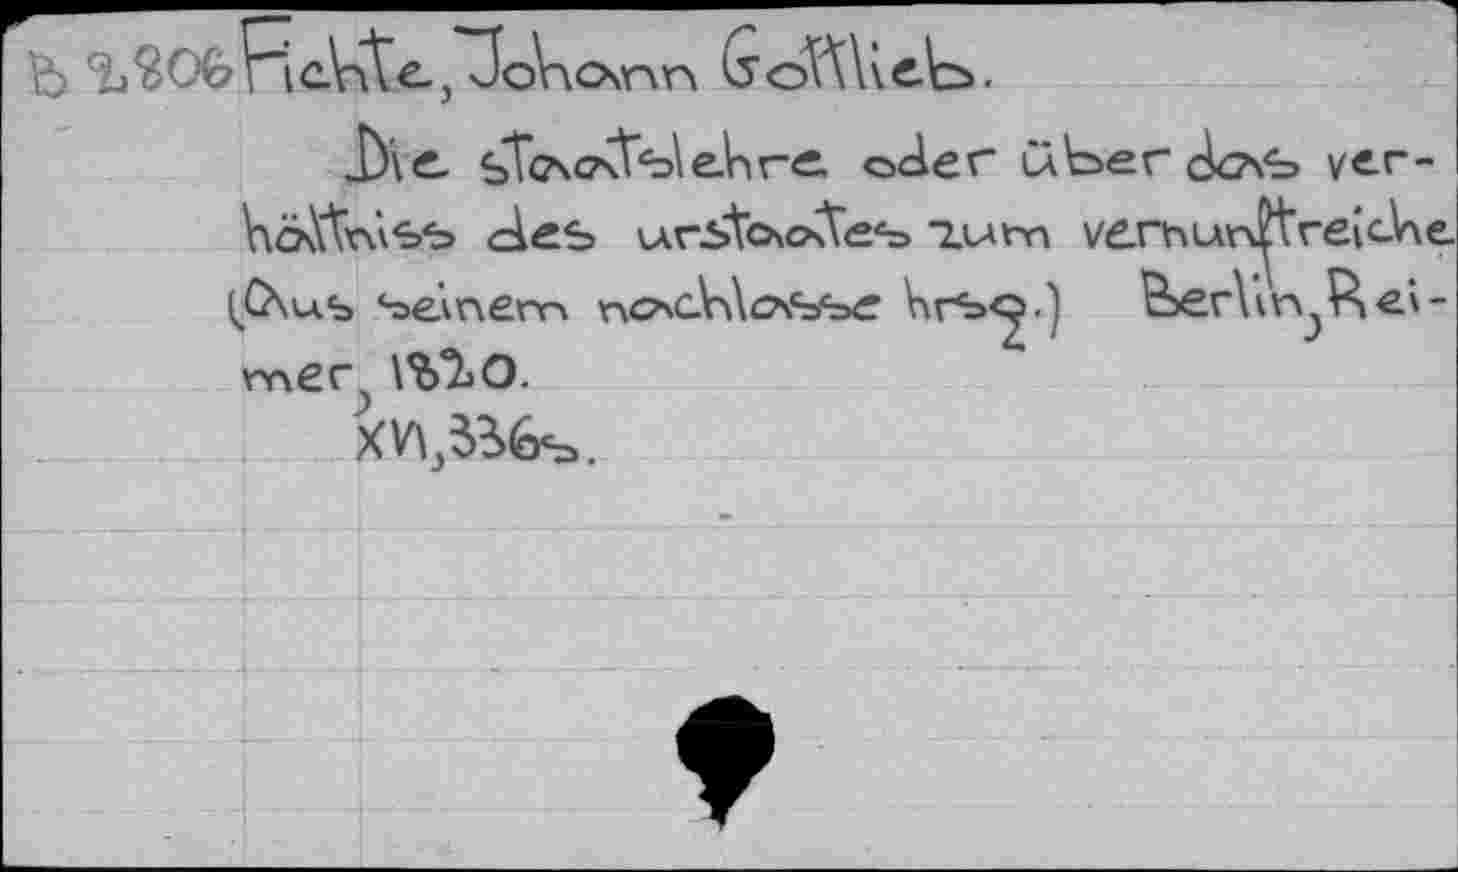 B 2806 Fichte, Johann Gottlieb.
Die staatslehre oder über das ver-
hältniss des urstaates zum vernunftreiche
(Aus seinem nachlasse hrsg.) Berlin, Rei-
mer, 1820.
XVI, 336s.